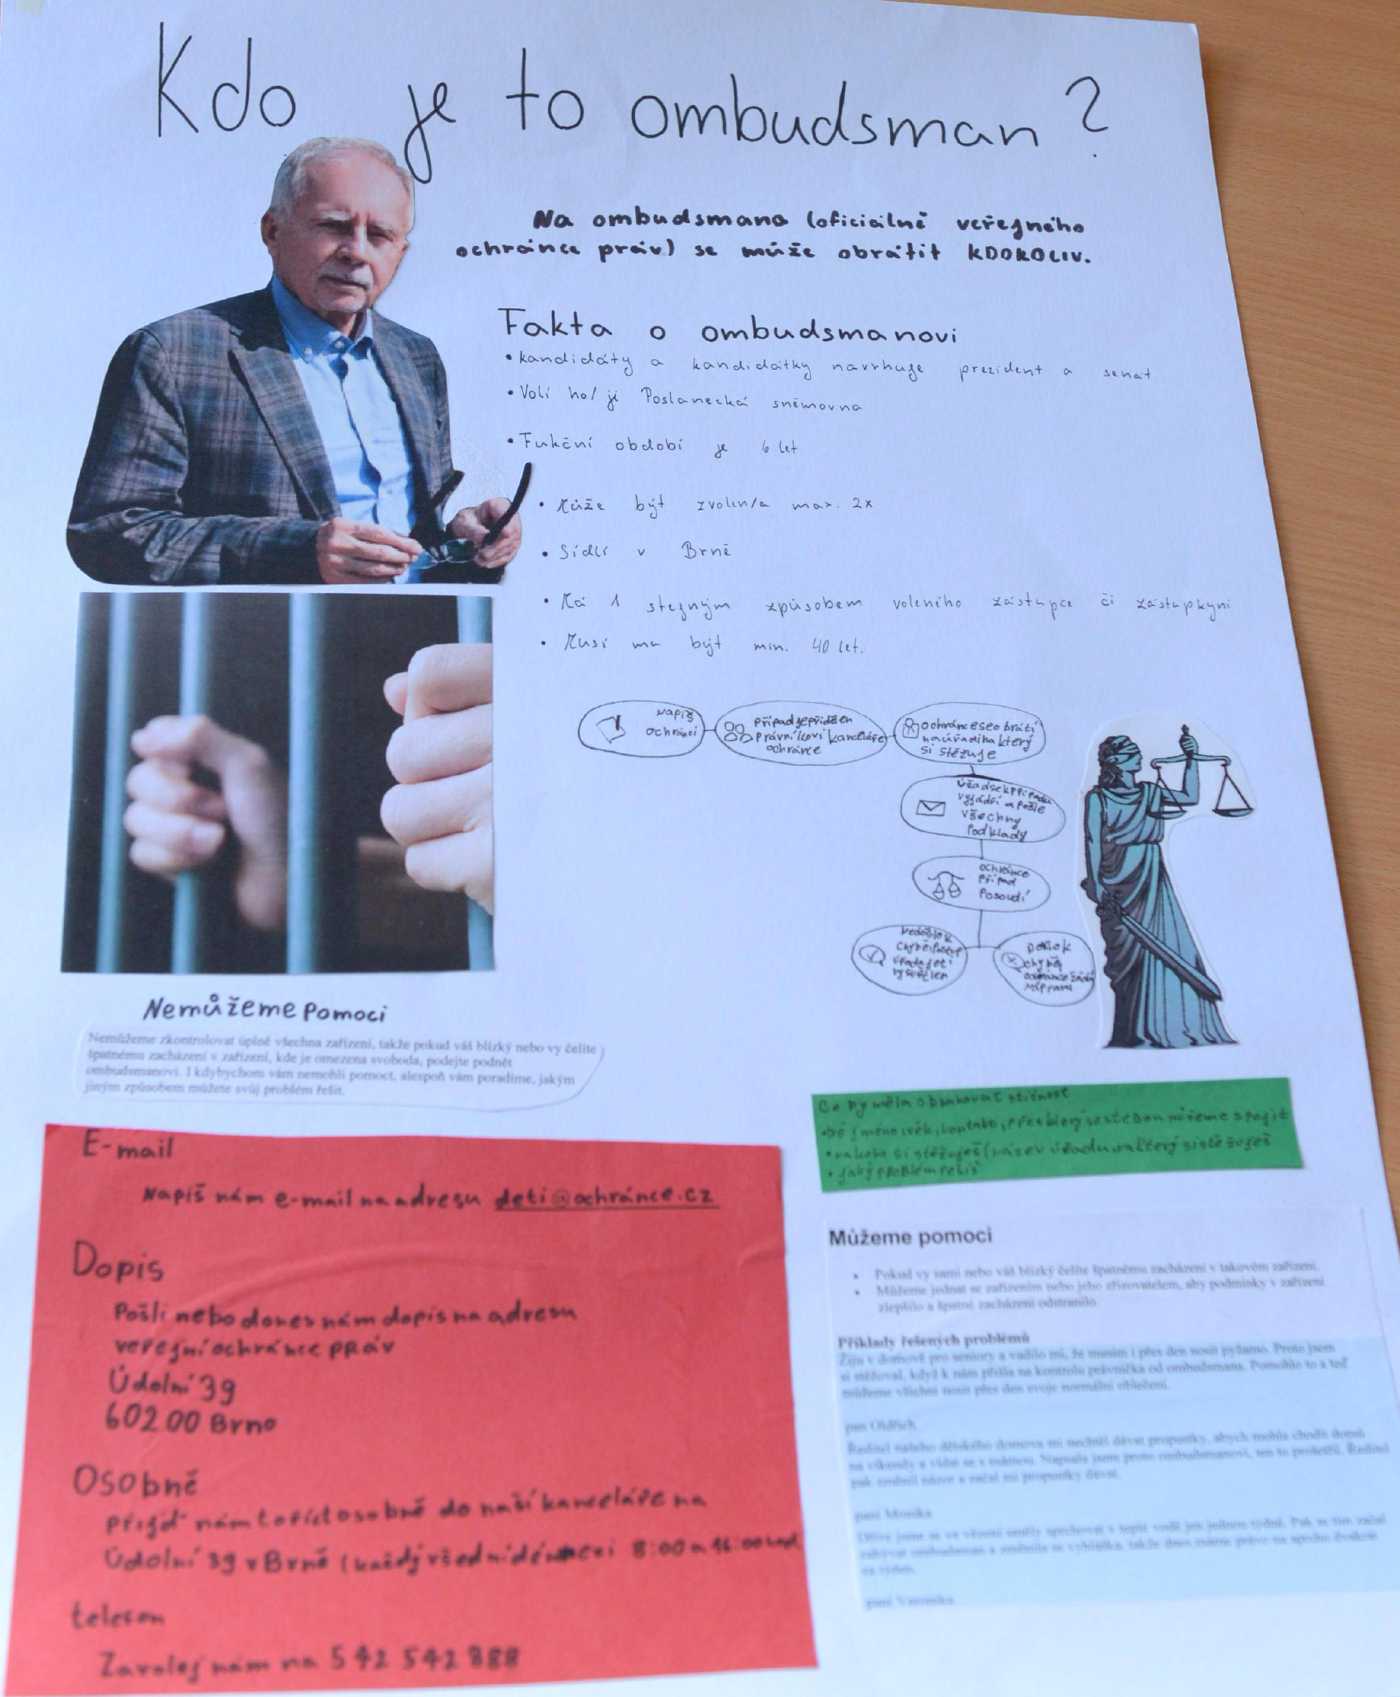 Kdo je to ombudsman?
Na ombudsmana (oficiálně veřejného
ochránce práv) se může obrátit KDOKOLIV.
Fakta o ombudsmanovi
• kandidáty a kandidátky navrhuje prezident a senát
• Volí ho/ji Poslanecká sněmovna
• Fukční období je 6 let
• Může být zvolen/a max. 2x
• Sídlí v Brně
• Má 1 stejným způsobem voleného zástupce či zástupkyni
• Musí mu být min. 40 let.
Napiš
ochránci
Případ je přidělen
právníkovi kanceláře
ochránce
ochránce se obrátí
na úřad na který
si stěžuje
Úřad se k případu
vyjádří a pošle
všechny
podklady
ochránce
případ
posoudí
Nedošlo k
chybě
vysvětlen
Došlo k
chybě
ochránce žádá
nápravu
Nemůžeme pomoci
Nemůžeme zkontrolovat úplně všechna zařízení, takže pokud váš blízký nebo vy čelíte
špatnému zacházení v zařízení, kde je omezena svoboda, podejte podnět
ombudsmanovi. I kdybychom vám nemohli pomoct, alespoň vám poradíme, jakým
jiným způsobem můžete svůj problém řešit.
E-mail
Napiš nám e-mail na adresu deti@ochránce.cz
Dopis
Pošli nebo dones nám dopis na adresu
veřejní ochránce práv
Údolní 39
602 00 Brno
Osobně
přijď nám to říct osobně do naší kanceláře na
Údolní 39 v Brně (každý všední den mezi 8:00 a 16:00 hod
telefon
Zavolej nám na 542 542 888
Co by měla obsahovat stížnost
jméno, věk, kontakt, přes který se s tebou můžeme spojit
• na koho si stěžuješ (název úřadu na který si stěžuješ
• jaký problém řešíš
Můžeme pomoci
• Pokud vy sami nebo váš blízký čelíte špatnému zacházení v takovém zařízení.
• Můžeme jednat se zařízením nebo jeho zřizovatelem, aby podmínky v zařízení
zlepšilo a špatné zacházení odstranilo.
Příklady řešených problémů
Žiju v domově pro seniory a vadilo mi, že musím i přes den nosit pyžamo. Proto jsem
si stěžoval, když k nám přišla na kontrolu právnička od ombudsmana. Pomohlo to a teď
můžeme všichni nosit přes den svoje normální oblečení.
pan Oldřich
Ředitel našeho dětského domova mi nechtěl dávat propustky, abych mohla chodit domů
na víkendy a vídat se s mámou. Napsala jsem proto ombudsmanovi, ten to prošetřil. Ředitel
pak změnil názor a začal mi propustky dávat.
paní Monika
Dříve jsme se ve vězení směly sprchovat v teplé vodě jen jednou týdně. Pak se tím začal
zabývat ombudsman a změnila se vyhláška, takže dnes máme právo na sprchu dvakrát
za týden.
paní Veronika